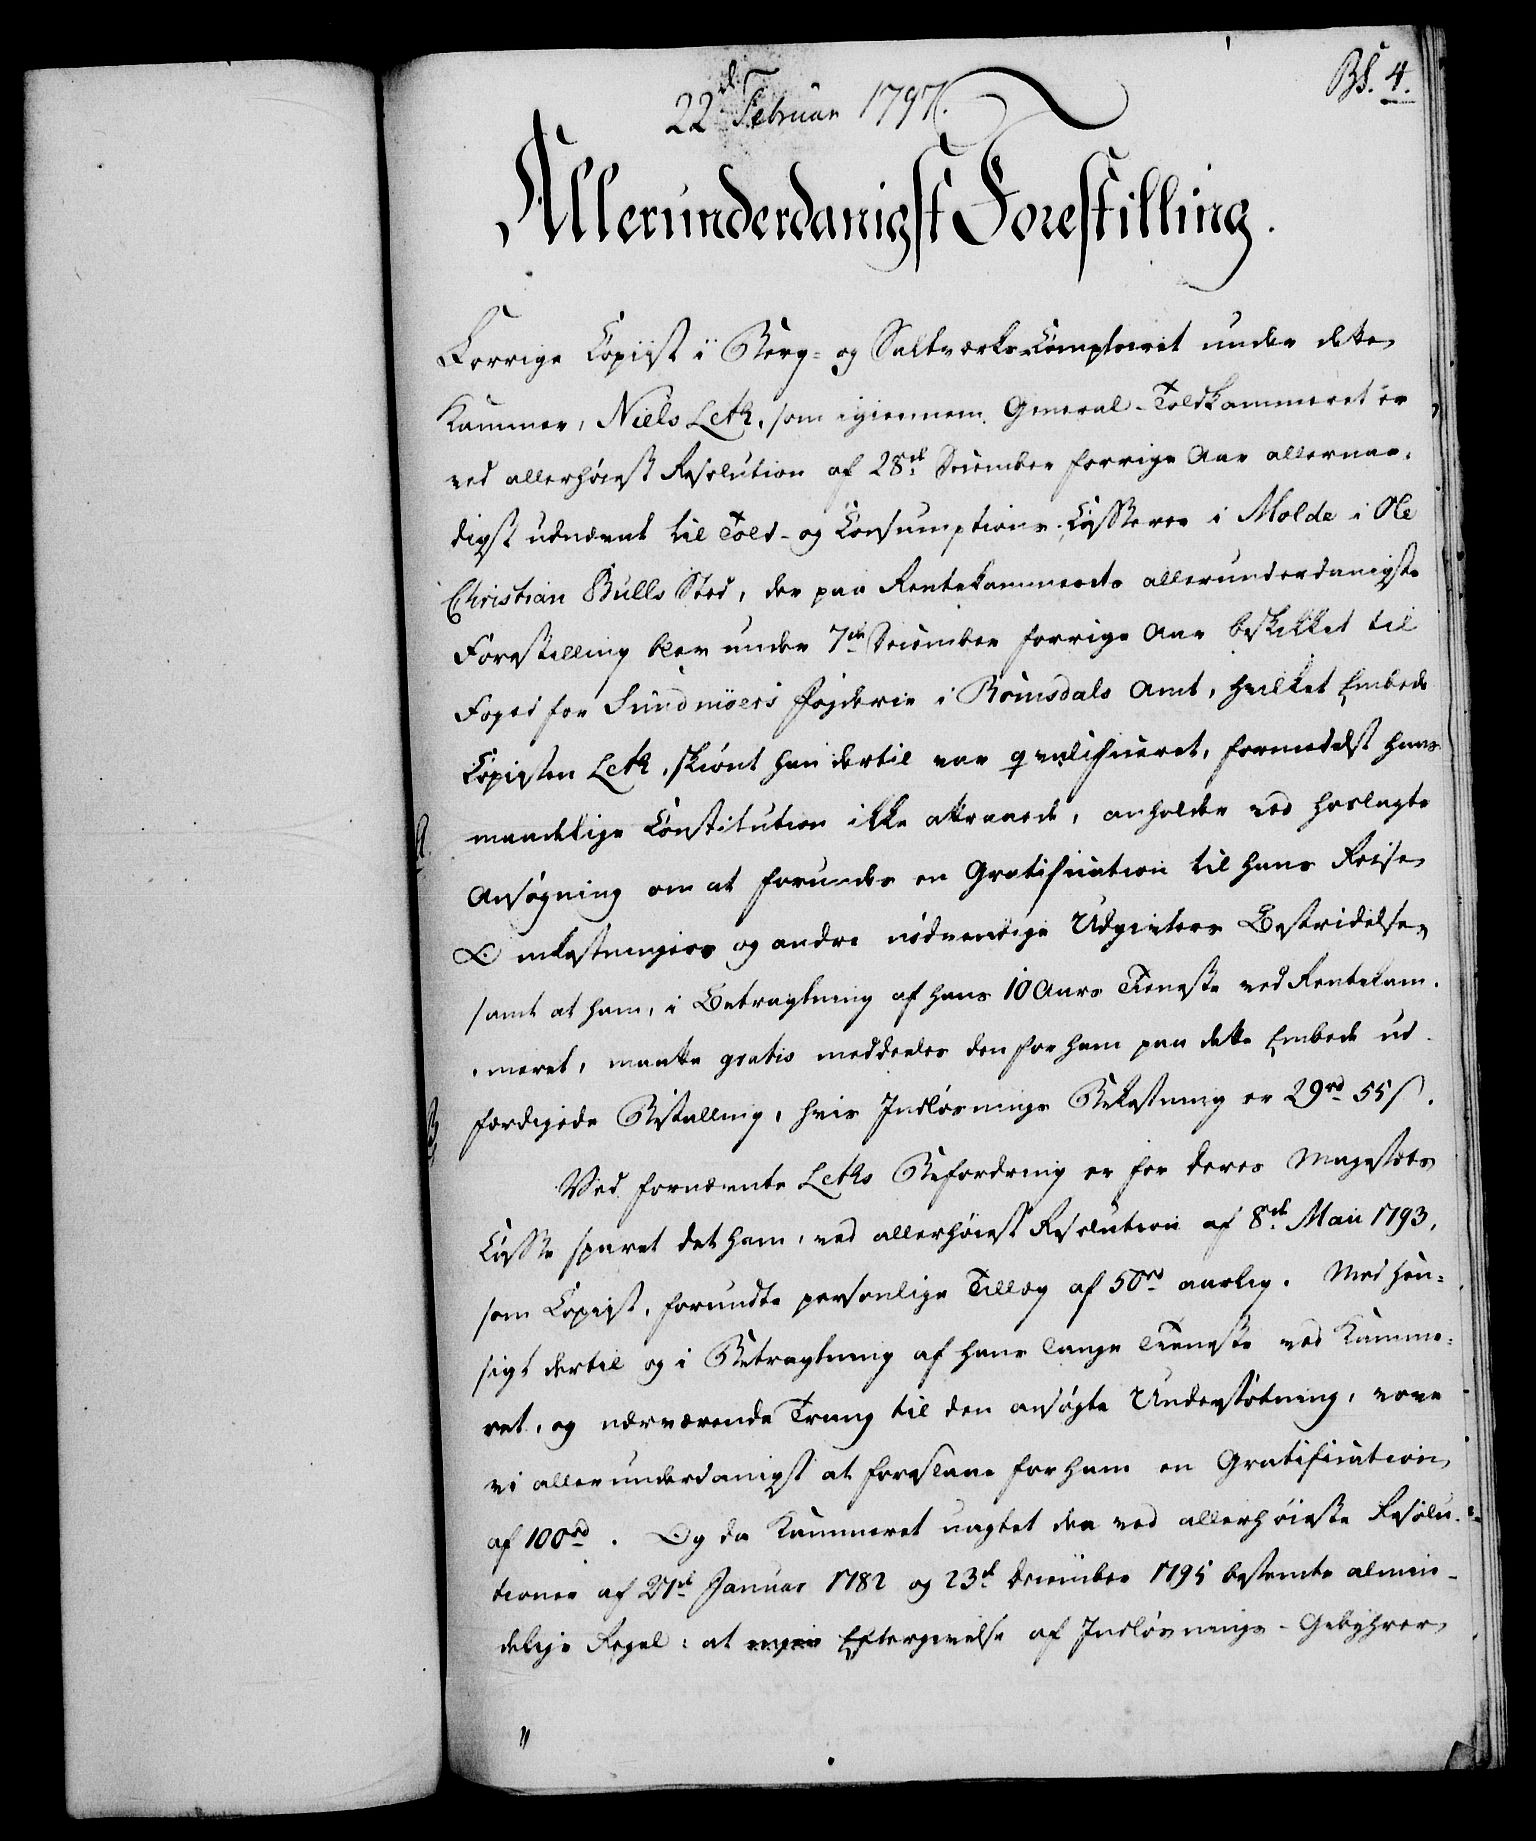 BS. 4.
22de Februar 1797.
Allerunderdanigst Forestilling.
Forrige Copiist i Berg- og Saltværks-Comptoiret under dette
Kammer, Niels Leth, som igiennem General-Toldkammeret er
ved allerhøiest Resolution af 28de December forrige Aar allernaa-
digst udnævnt til Told- og Consumptions-Casserer i Molde i Ole
Christian Bulls Sted, der paa Rentekammerets allerunderdanigste
Forestilling blev under 7de December forrige Aar beskikket til
Foged for Sundmöers Fogderie i Romsdals Amt, hvilket Embede
Copiisten Leth, skiønt han dertil var qvalificeret, formedelst hans
maadelige Constitution ikke attraaede, anholder ved hoslagte
Ansøgning om at forundes en Gratification til hans Reise
Omkostningers og andre nødvendige Udgivters Bestridelse,
samt at ham, i Betragtning af hans 10 Aars Tieneste ved Rentekam-
meret, maatte gratis meddeeles den for ham paa dette Embede ud-
færdigede Bestalling, hvis Indløsnings Bekostning er 29rd 55 s.
A.
B
Ved fornævnte Leths Befordring er for Deres Majestæts
Casse sparet det ham, ved allerhøiest Resolution af 8de Maii 1793,
som Copiist, forundte personlige Tillæg af 50rd aarlig. Med Hen-
sigt dertil og i Betragtning af hans lange Tieneste ved Kamme-
ret, og nærværende Trang til den ansøgte Understøtning, vove
vi allerunderdanigst at foreslaae for ham en Gratification
af 100rd. Og da Kammeret uagtet den ved allerhøieste Resolu-
tioner af 27de Januar 1782 og 23de December 1795 bestemte almin-
delige Regel: at ingen Eftergivelse af Indløsnings-Gebyhrer
"